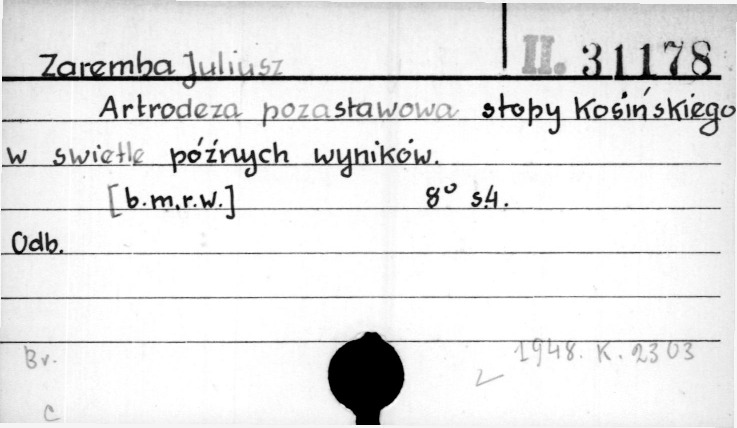 Zaremba Juliusz II. 31178
Artrodeza pozastawowa stopy Kosińskiego
w swietle późnych wyników.
[b.m.r.w.] 8° s.4.
Odb.
Br. 1948. K. 2303
c